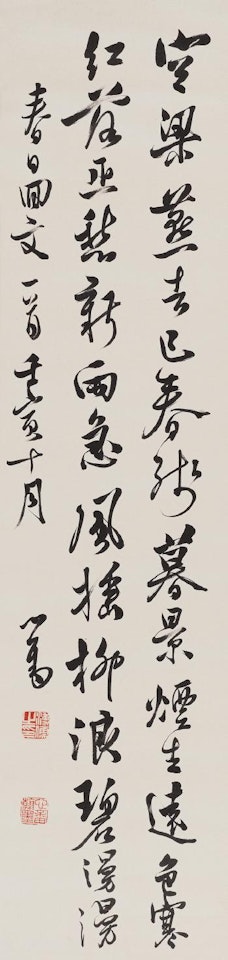 空梁燕去已春殘暮景煙生遠色寒
紅落亞愁新雨急風搖柳浪碧漫漫
春日回文一首壬寅十月
心畬